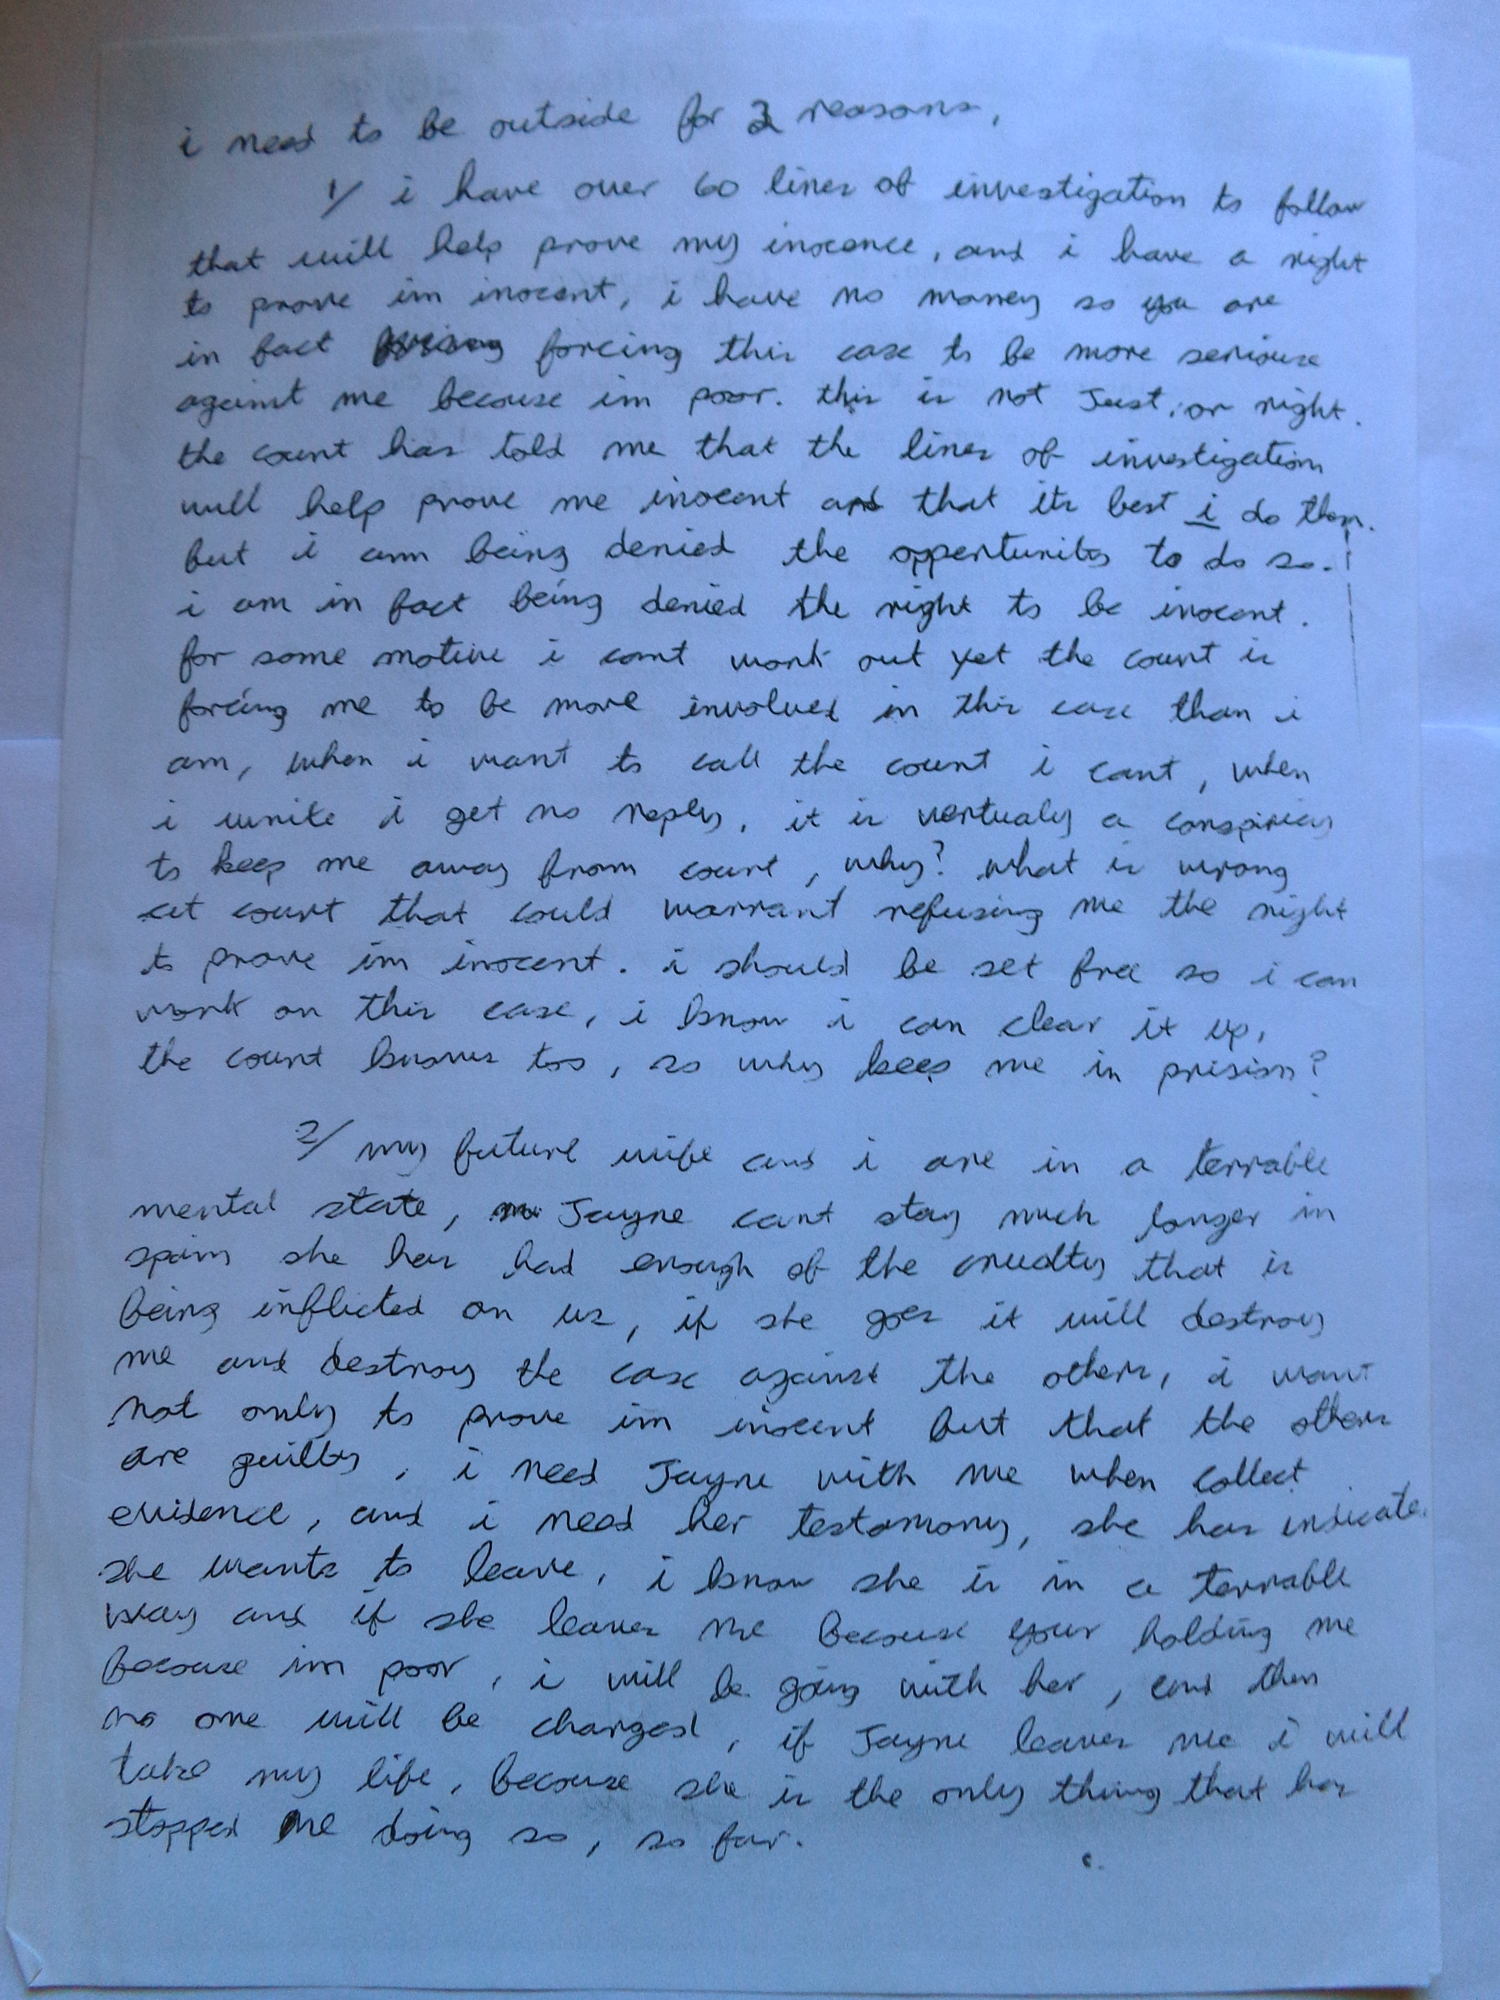 i need to be outside for 2 reasons,
1/ i have over 60 lines of investigation to follow
that will help prove my inocence, and i have a right
to prove im inocent, i have no money so you are
in fact forcing this case to be more seriouse
against me because im poor. this is not Just, or right.
the court has told me that the lines of investigation
will help prove me inocent and that its best i do them.
but i am being denied the oppertunity to do so.
i am in fact being denied the right to be inocent.
for some motive i cant work out yet the court is
forcing me to be more involved in this case than i
am, when i want to call the court i cant, when
i write i get no reply, it is vertualy a conspiricy
to keep me away from court, why? what is wrong
at court that could warrant refusing me the right
to prove im inocent. i should be set free so i can
work on this case, i know i can clear it up,
the court knows too, so why keep me in prision?
2/ my future wife and i are in a terrable
mental state, Jayne cant stay much longer in
spain she has had enough of the cruelty that is
being inflicted on us, if she goes it will destroy
me and destroy the case against the others, i want
not only to prove im inocent but that the others
are guilty, i need Jayne with me when collect
evidence, and i need her testamony, she has indicate
she wants to leave, i know she is in a terrable
way and if she leaves me because your holding me
because im poor, i will be going with her, and then
no one will be charged, if Jayne leaves me i will
take my life, because she is the only thing that has
stopped me doing so, so far.